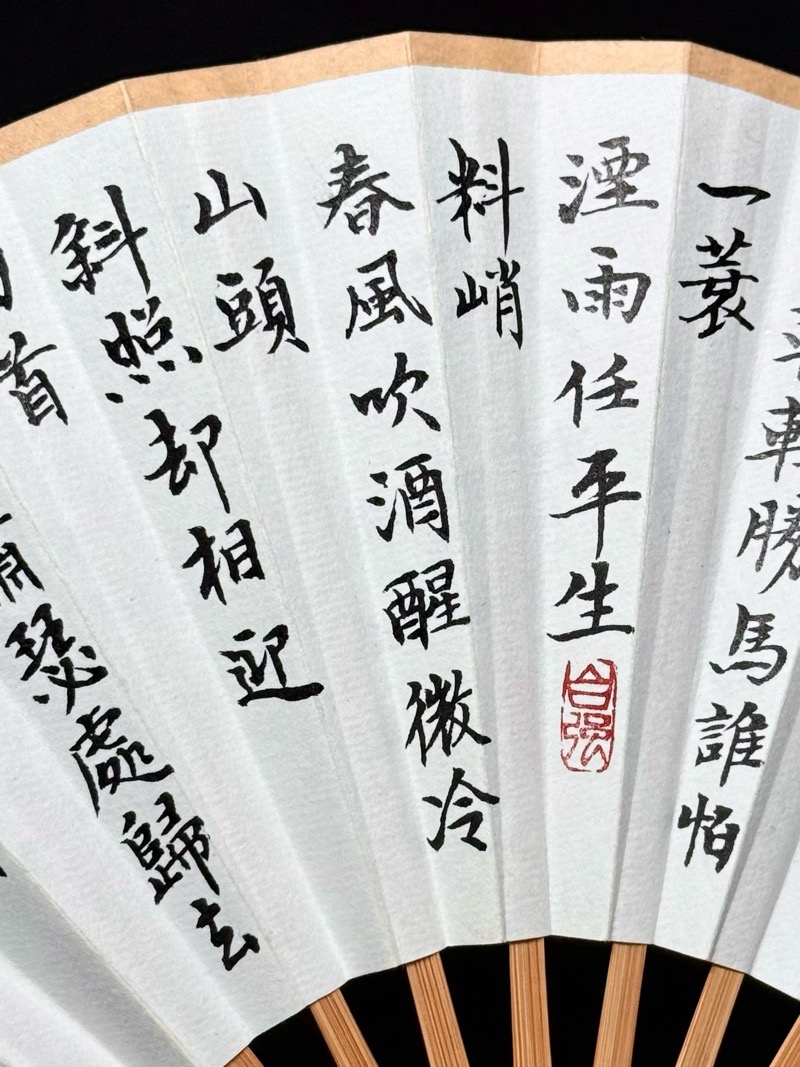 輕勝馬誰怕
一蓑
湮雨任平生
自强
料峭
春風吹酒醒微冷
山頭
斜照却相迎
首
瑟處歸去